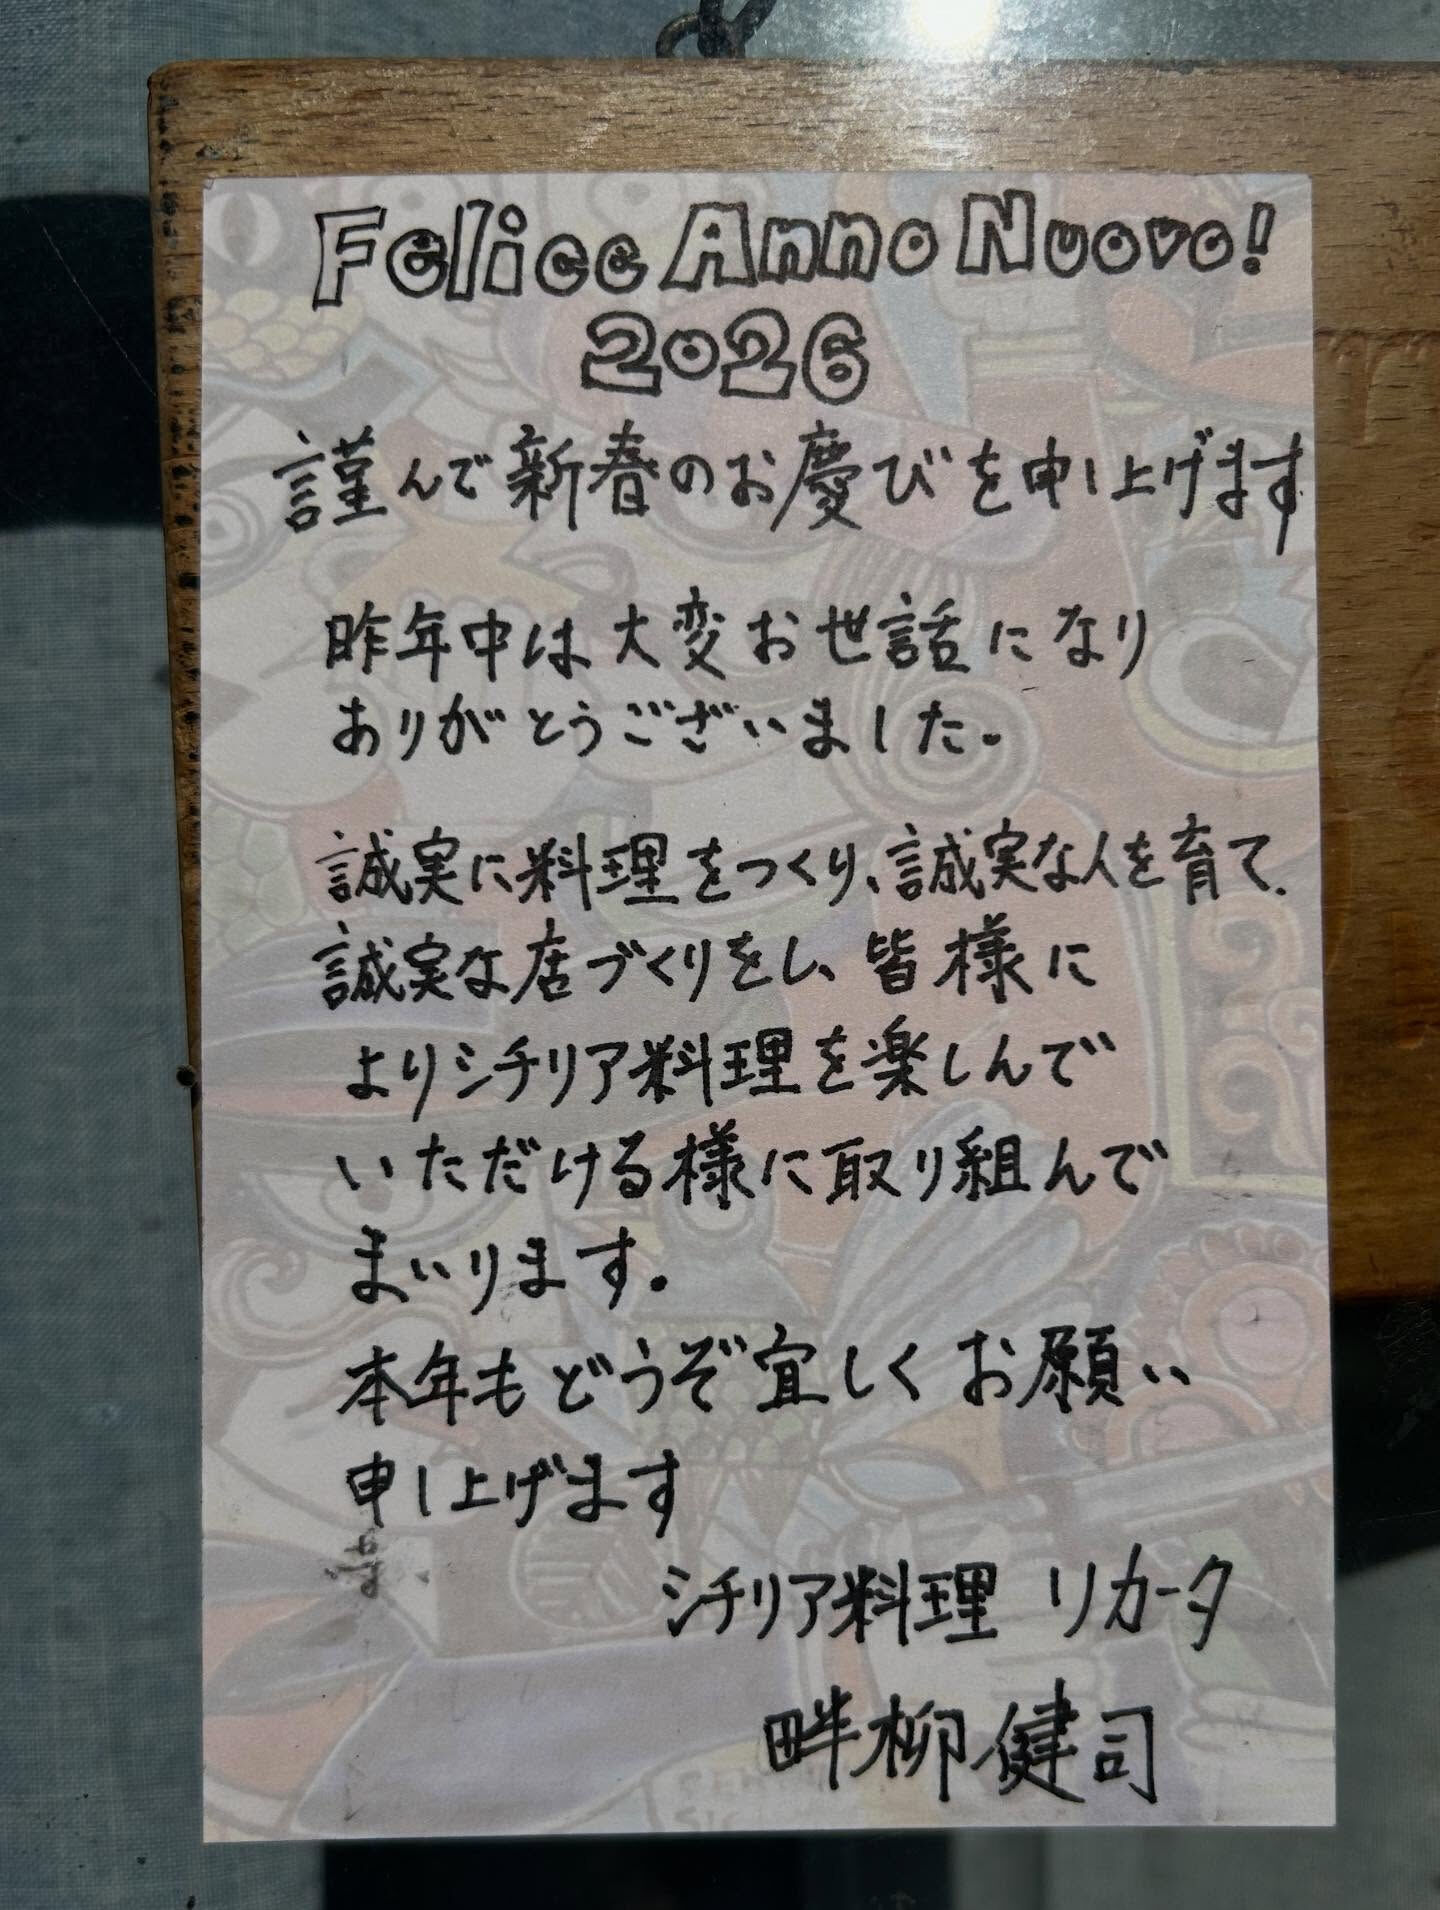 Felice Anno Nuovo!
2026
謹んで新春のお慶びを申し上げます
昨年中は大変お世話になり
ありがとうございました。
誠実に料理をつくり、誠実な人を育て、
誠実な店づくりをし、皆様に
よりシチリア料理を楽しんで
いただける様に取り組んで
まいります。
本年もどうぞ宜しくお願い
申し上げます
シチリア料理 リカータ
畔柳健司